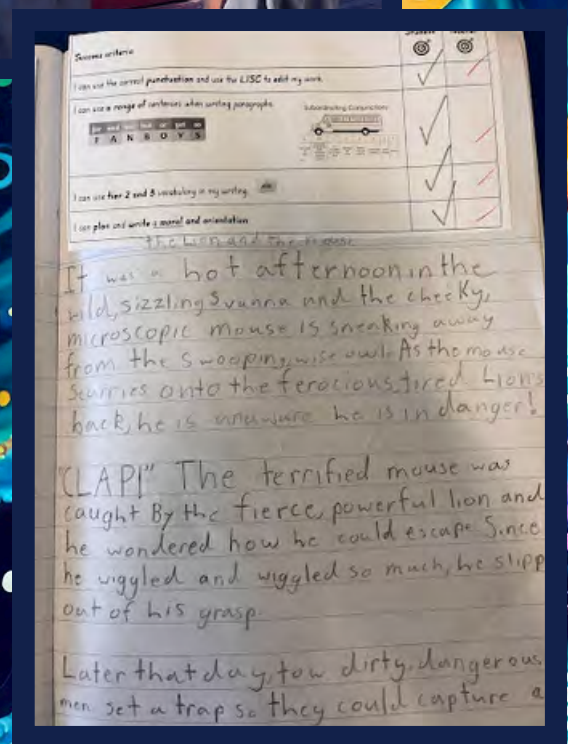 Success criteria
I can use the correct punctuation and use the LISC to edit my work.
I can use a range of sentences when writing paragraphs.
Subordinating Conjunctions
for and nor but or yet so
F A N B O Y S
I can use tier 2 and 3 vocabulary in my writing.
I can plan and write a moral and orientation
the Lion and the Mouse
It was a hot afternoon in the
wild, sizzling Svunna and the cheeky,
microscopic mouse is sneaking away
from the swooping, wise owl. As the mouse
scurries onto the ferocious, tired Lion's
back, he is unaware he is in danger!
"CLAP!" The terrified mouse was
caught By the fierce, powerful lion and
he wondered how he could escape. Since
he wiggled and wiggled so much, he slipp
out of his grasp.
Later that day, tow dirty, dangerous
men set a trap so they could capture a